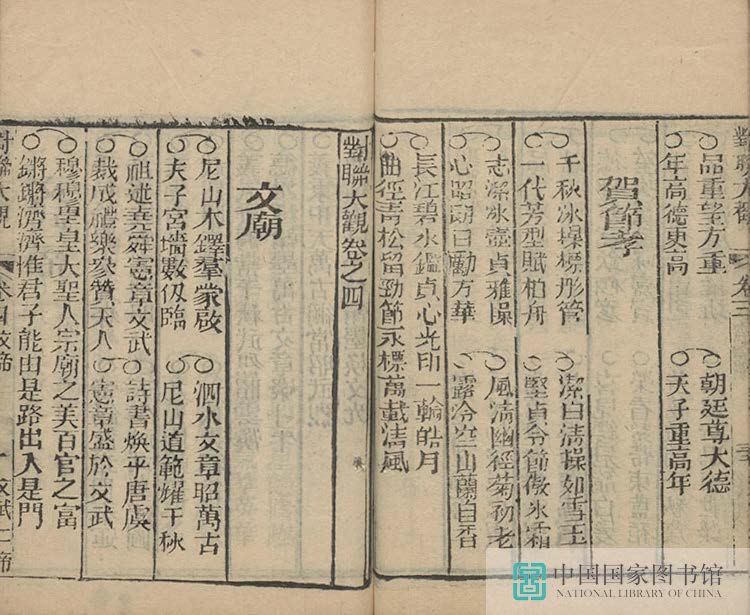 對聯大觀 卷三
品重望方重
年高德更高
朝廷尊大德
天子重高年
賀節孝
千秋冰操標彤管
一代芳型賦柏舟
潔白清操如雪玉
堅貞令節傲冰霜
志潔冰壺貞雅操
心昭朗日勵方華
風清幽徑菊初老
露冷空山蘭自香
長江碧水鑑貞心光印一輪皓月
曲徑青松留勁節永標萬載清風
對聯大觀卷之四
文廟
尼山木鐸羣蒙啟
夫子宮墻數仞臨
泗水文章昭萬古
尼山道範耀千秋
祖述堯舜憲章文武
裁成禮樂參贊天人
詩書煥乎唐虞
憲章盛於文武
穆穆皇皇大聖人宗廟之美百官之富
鏘鏘濟濟惟君子能由是路出入是門
對聯大觀 卷四 文帝
中国国家图书馆
NATIONAL LIBRARY OF CHINA